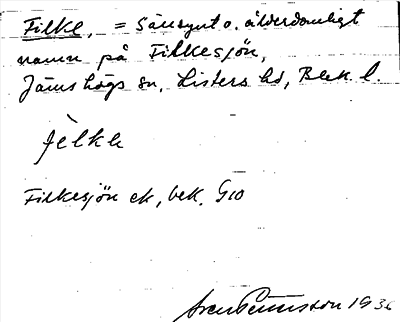 Filke, = Sänkynt o. ålderdomligt
namn på Filkesjön,
Jämshögs sn, Listers hd, Blek. l.
fèlke
Filkesjön ek, bek. G10
Sven Benson 1936